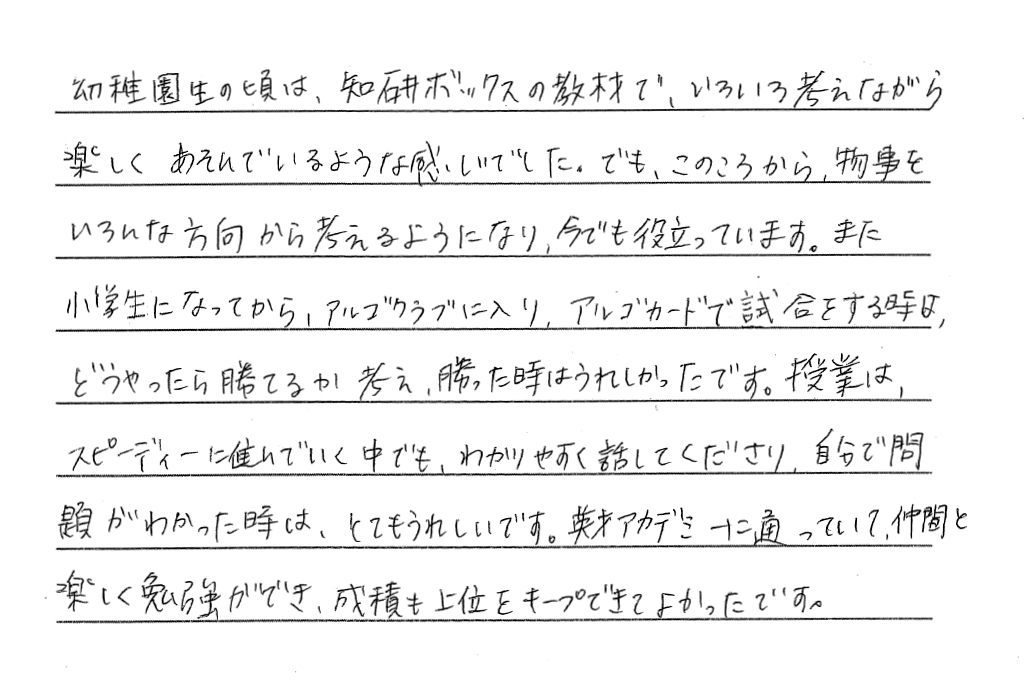 幼稚園生の頃は、知研ボックスの教材で、いろいろ考えながら
楽しく あそんでいるような感じでした。でも、このころから、物事を
いろんな方向から考えるようになり、今でも役立っています。また
小学生になってから、アルゴクラブに入り、アルゴカードで試合をする時は、
どうやったら勝てるか 考え、勝った時はうれしかったです。授業は、
スピーディーに進んでいく中でも、わかりやすく話してくださり、自分で問
題がわかった時は、とてもうれしいです。英才アカデミーに通っていて、仲間と
楽しく勉強ができ、成積も上位をキープできてよかったです。